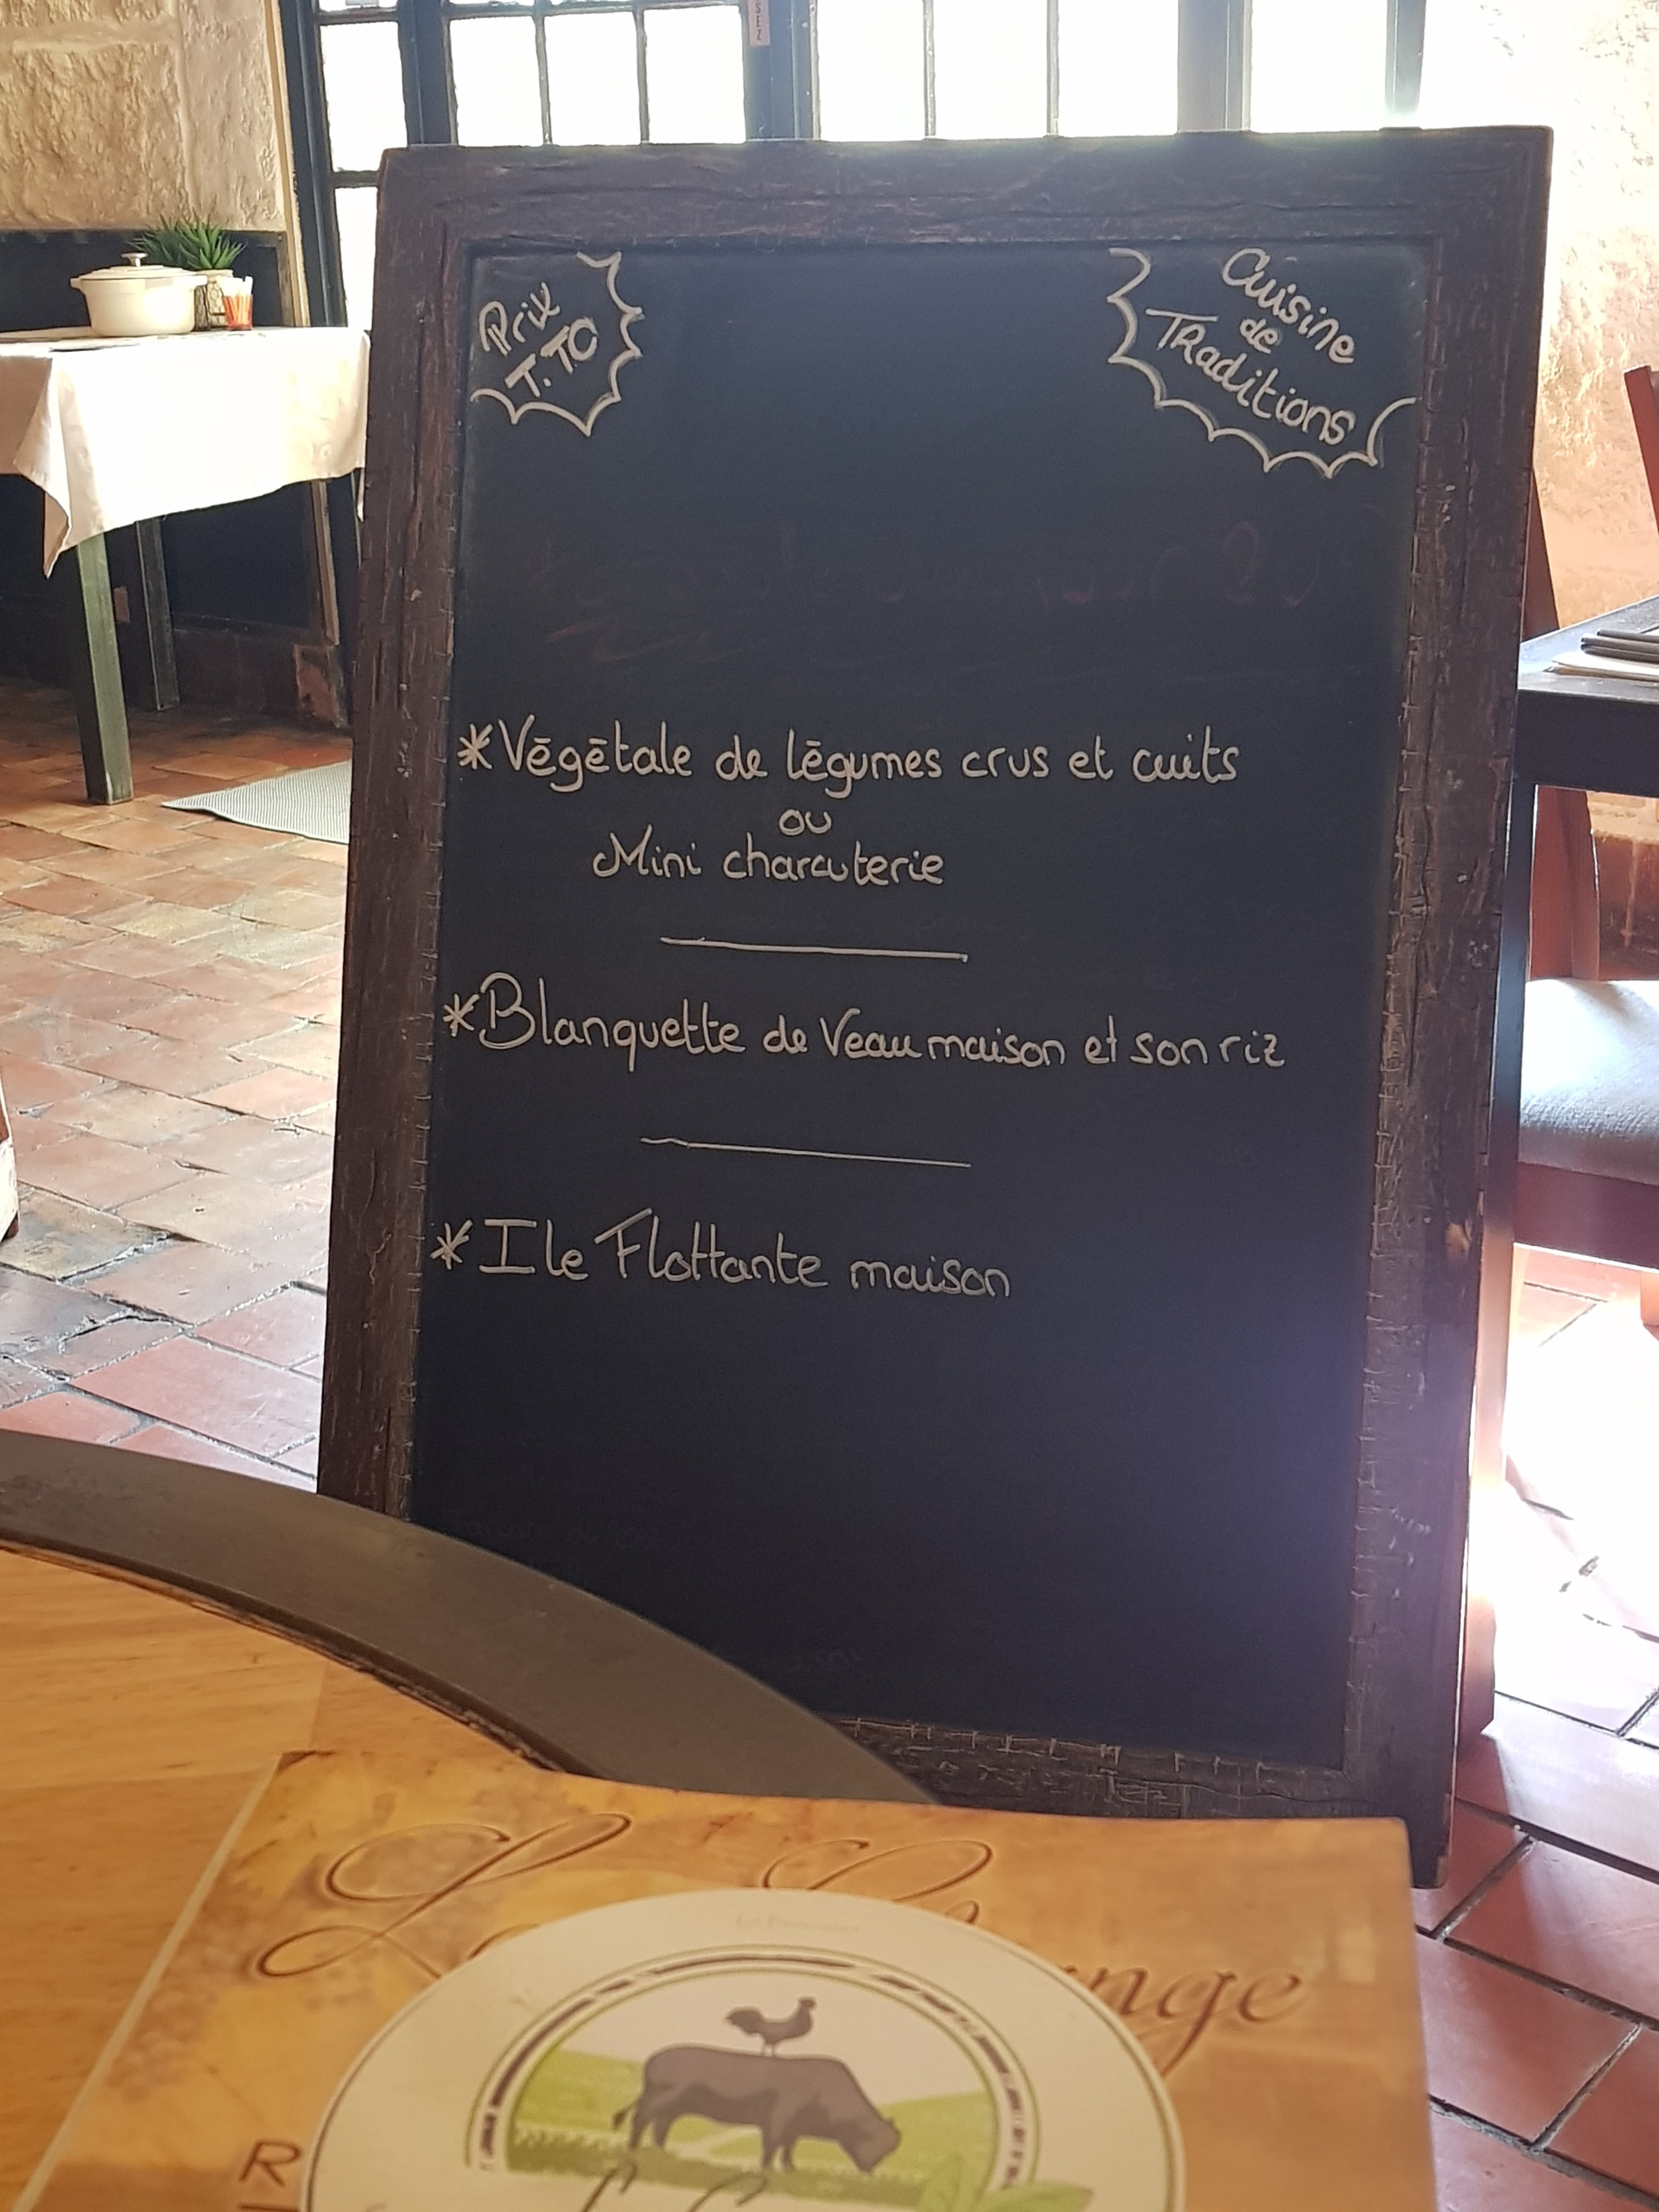 Prix
T.TC
Cuisine
de
TRaditions
*Végétale de légumes crus et cuits
ou
Mini charcuterie
*Blanquette de Veau maison et son riz
*Ile Flottante maison